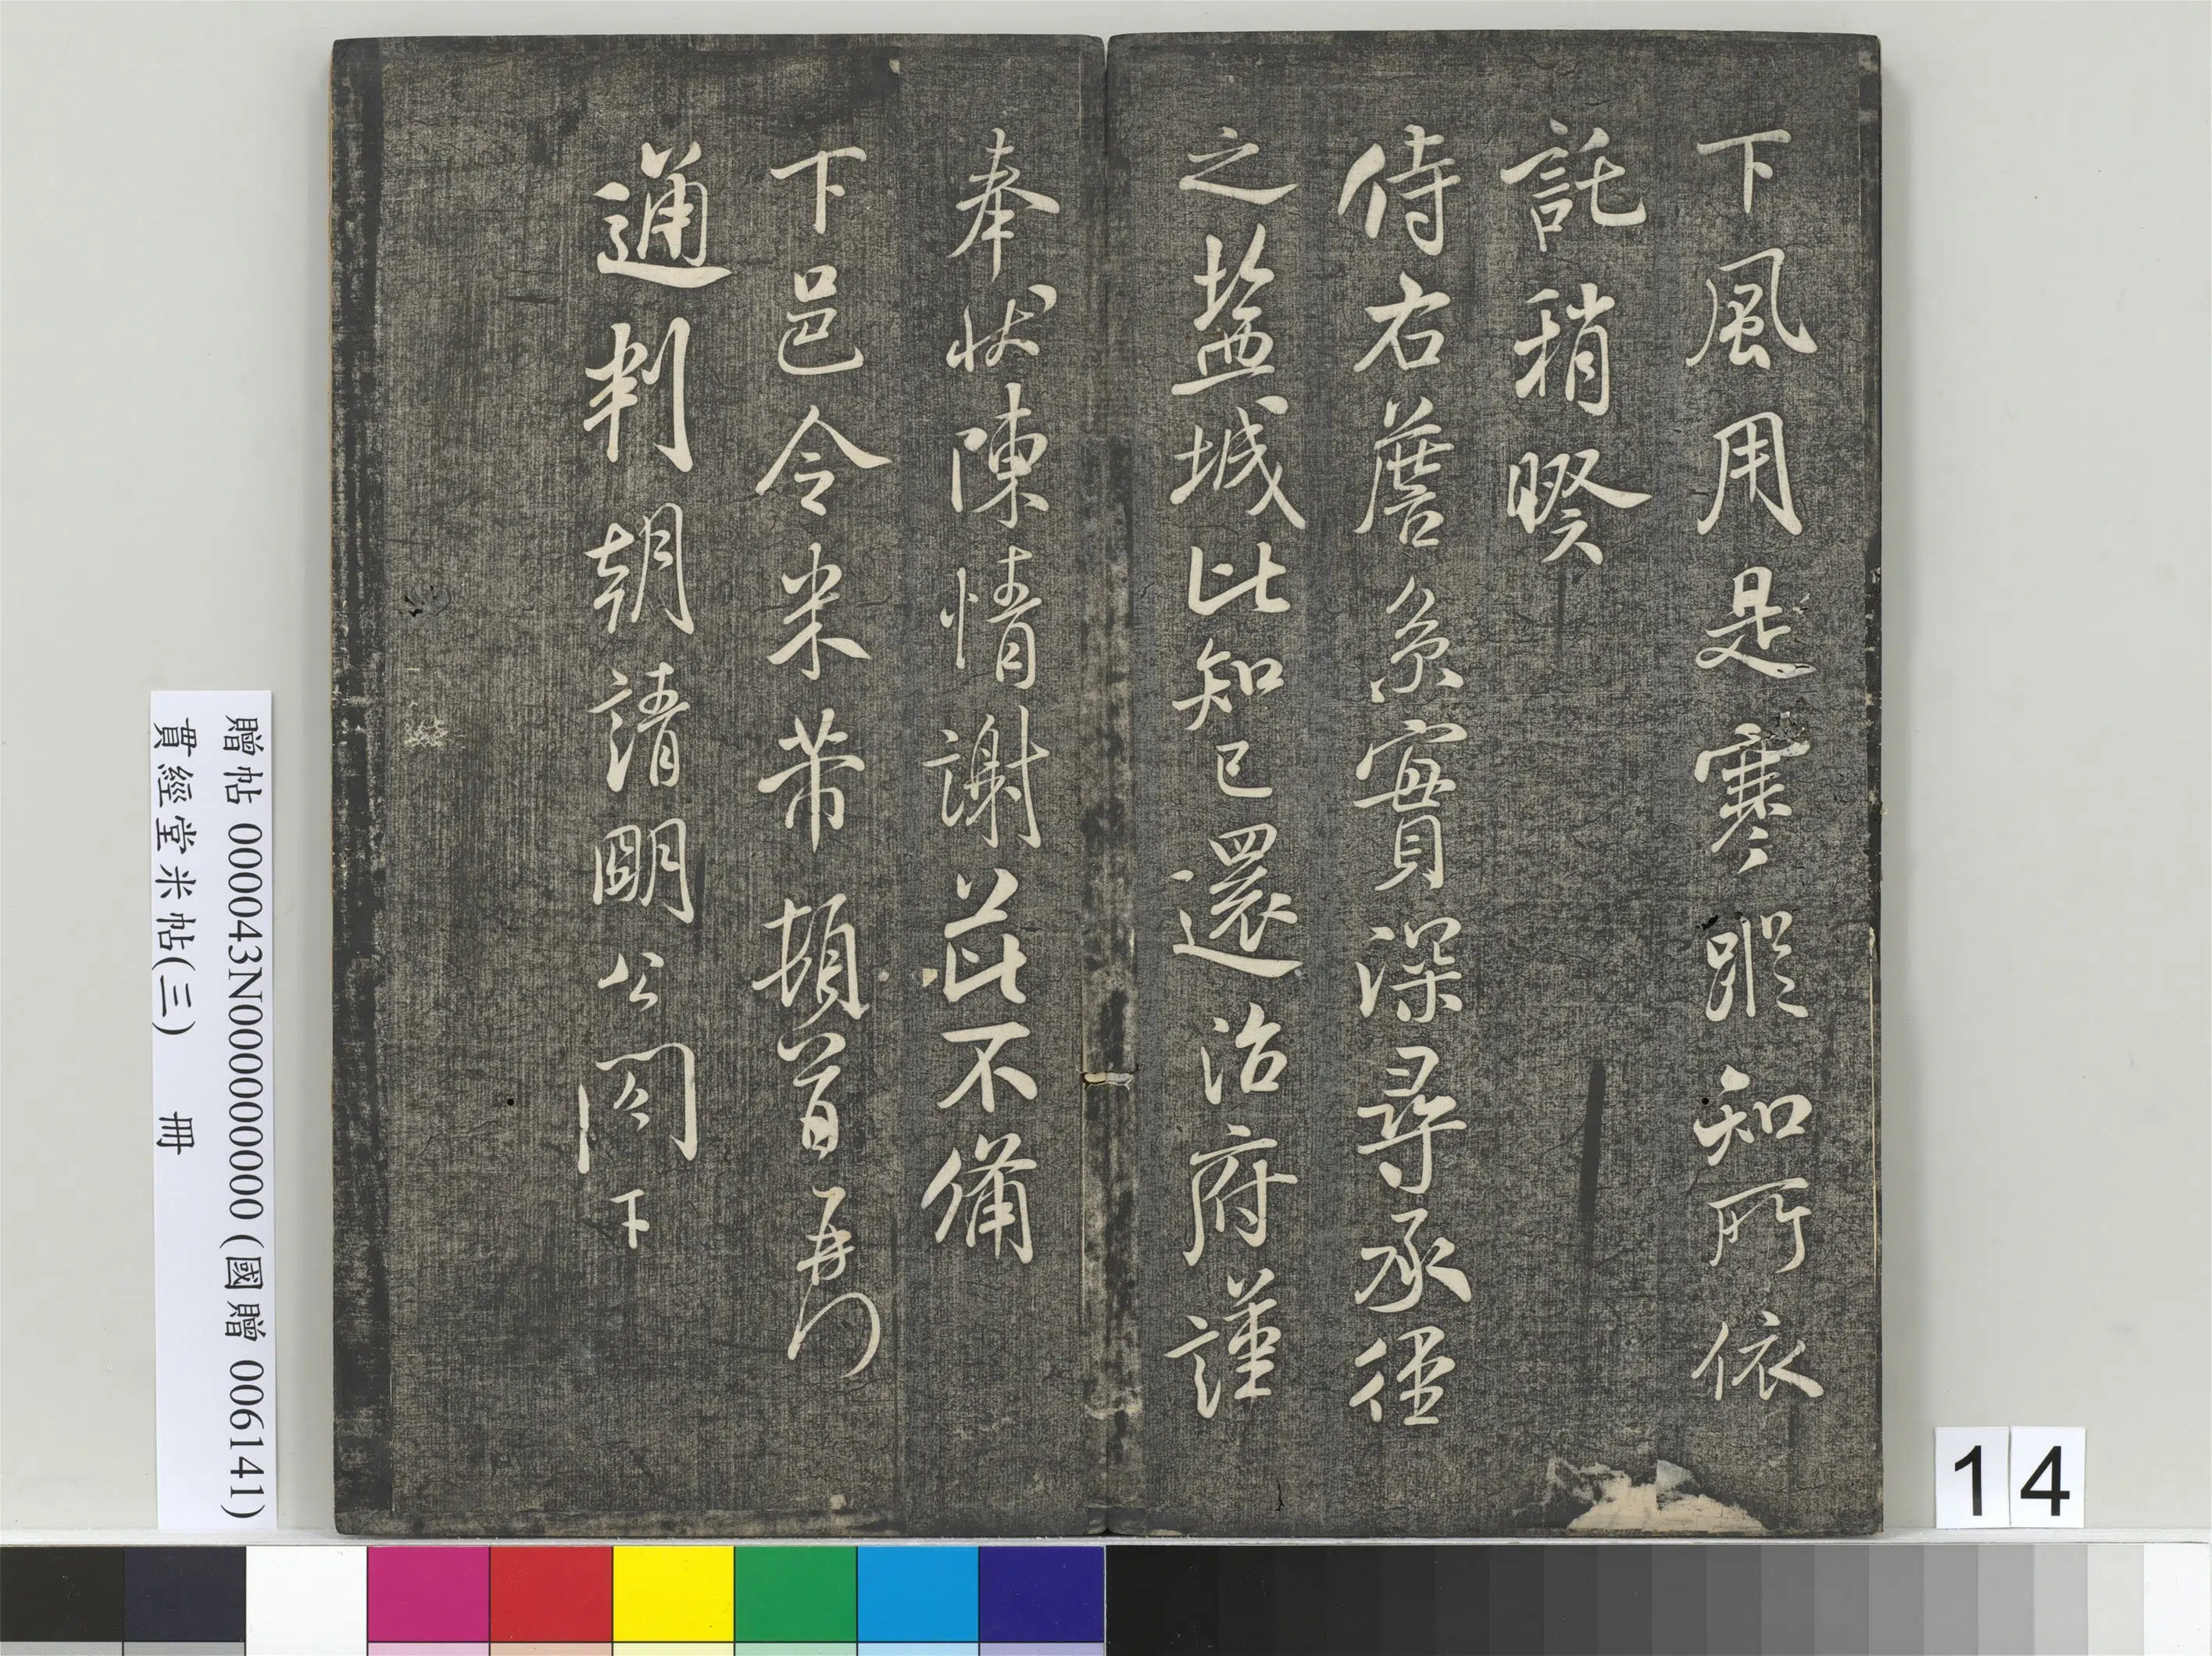 下風用是寒蹤知所依
託稍暌
侍右詹系實深尋承徑
之盐城比知已還治府謹
奉狀陳情謝茲不備
下邑令米芾頓首再
通判朝請明公閤下
贈帖 000043N000000000 (國贈 006141)
貫經堂米帖(三) 冊
14